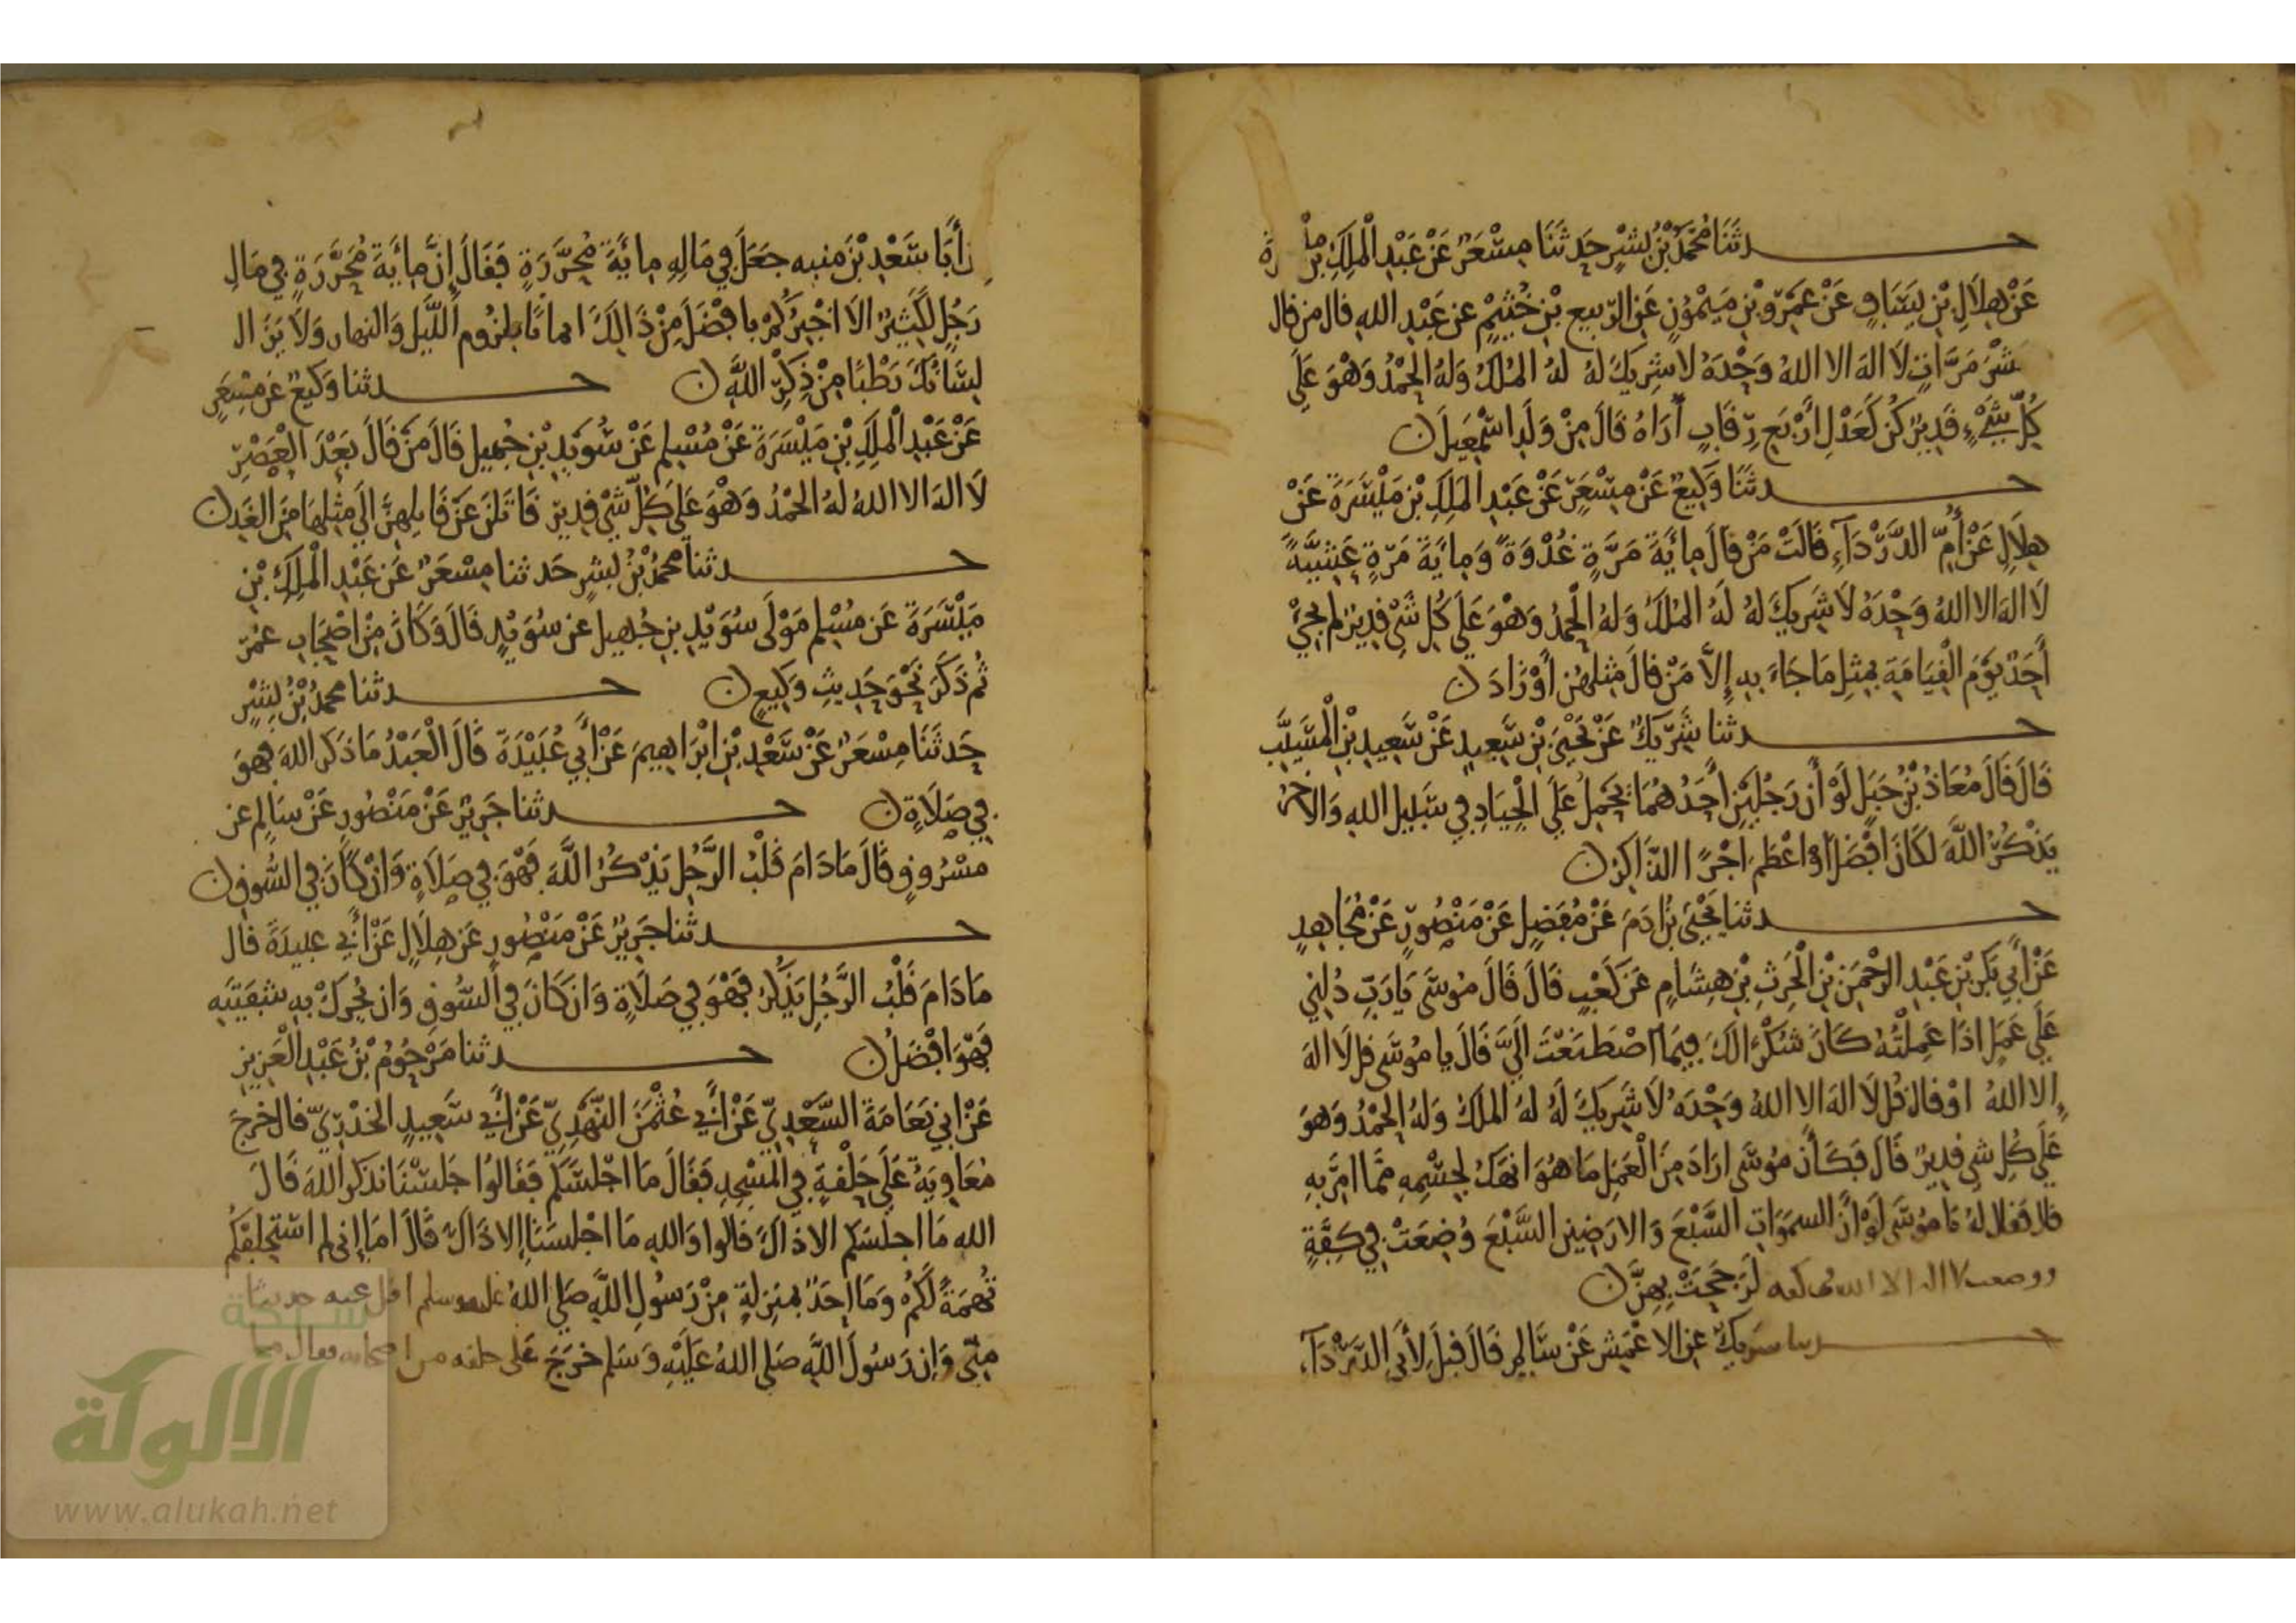 حدثنا محمد بن بشر حدثنا مسعر عن عبد الملك بن
عن هلال بن يساف عن عمرو بن ميمون عن الربيع بن خثيم عن عبد الله قال من قال
عشر مرات لا اله الا الله وحده لا شريك له له الملك وله الحمد وهو على
كل شيء قدير كن كعدل أربع رقاب أراه قال من ولد اسمعيل ن
حدثنا وكيع عن مسعر عن عبد الملك بن ميسرة عن
هلال عن أم الدرداء قالت من قال مائة مرة غدوة ومائة مرة عشية
لا اله الا الله وحده لا شريك له له الملك وله الحمد وهو على كل شي قدير لم يجئ
أحد يوم القيامة بمثل ما جاء به إلا من قال مثلهن أو زاد ن
حدثنا شريك عن يحيى بن سعيد عن سعيد بن المسيب
قال قال معاذ بن جبل لو أن رجلين أحدهما يحمل على الجياد في سبيل الله والآخر
يذكر الله لكان افضل أو اعظم اجرا الذاكر ن
حدثنا يحيى بن ادم عن مفضل عن منصور عن مجاهد
عن أبي بكر بن عبد الرحمن بن الحرث بن هشام عن كعب قال قال موسى يا رب دلني
على عمل اذا عملته كان شكرا لك فيما اصطنعت الي قال يا موسى قل لا اله
إلا الله او قال قل لا اله الا الله وحده لا شريك له له الملك وله الحمد وهو
على كل شي قدير قال فكأن موسى اراد من العمل ما هو انهك لجسمه مما امر به
قال فقال له يا موسى لو أن السموات السبع والارضين السبع وضعت في كفة
ووضعت لا اله الا الله في كفه لرجحت بهن ن
حدثنا شريك عن الاعمش عن سالم قال قيل لأبي الدرداء
ن أبا سعد بن منبه جعل في ماله مائة محررة فقال إن مائة محررة في مال
رجل لكثير الا اخبركم بافضل من ذالك ايمانا بلزوم الليل والنهار ولا يزال
لسانك رطبا من ذكر الله ن حدثنا وكيع عن مسعر
عن عبد الملك بن ميسرة عن مسلم عن سويد بن جهيل قال من قال بعد العصر
لا اله الا الله له الحمد وهو على كل شي قدير قاتلن عن قايلهن الي مثلها من الغد ن
حدثنا محمد بن بشر حدثنا مسعر عن عبد الملك بن
ميسرة عن مسلم مولى سويد بن جهيل عن سويد قال وكان من اصحاب عمر
ثم ذكر نحو حديث وكيع ن حدثنا محمد بن بشر
حدثنا مسعر عن سعد بن ابراهيم عن أبي عبيدة قال العبد ما ذكر الله فهو
في صلاة ن حدثنا جرير عن منصور عن سالم عن
مسروق قال ما دام قلب الرجل يذكر الله فهو في صلاة وان كان في السوق ن
حدثنا جرير عن منصور عن هلال عن أبي عبيدة قال
ما دام قلب الرجل يذكر فهو في صلاة وان كان في السوق وان يحرك به شفتيه
فهو افضل ن حدثنا مرحوم بن عبد العزيز
عن ابي نعامة السعدي عن أبي عثمن النهدي عن أبي سعيد الخدري قال خرج
معاوية على حلقة في المسجد فقال ما اجلسكم فقالوا جلسنا نذكر الله قال
الله ما اجلسكم الا ذاك قالوا والله ما اجلسنا إلا ذاك قال اما إني لم استحلفكم
تهمة لكم وما احد بمنزلة من رسول الله صلى الله عليه وسلم اقل عنه حديثا
مني وإن رسول الله صلى الله عليه وسلم خرج على حلقه من اصحابه فقال ما
شبكة
الألوكة
www.alukah.net